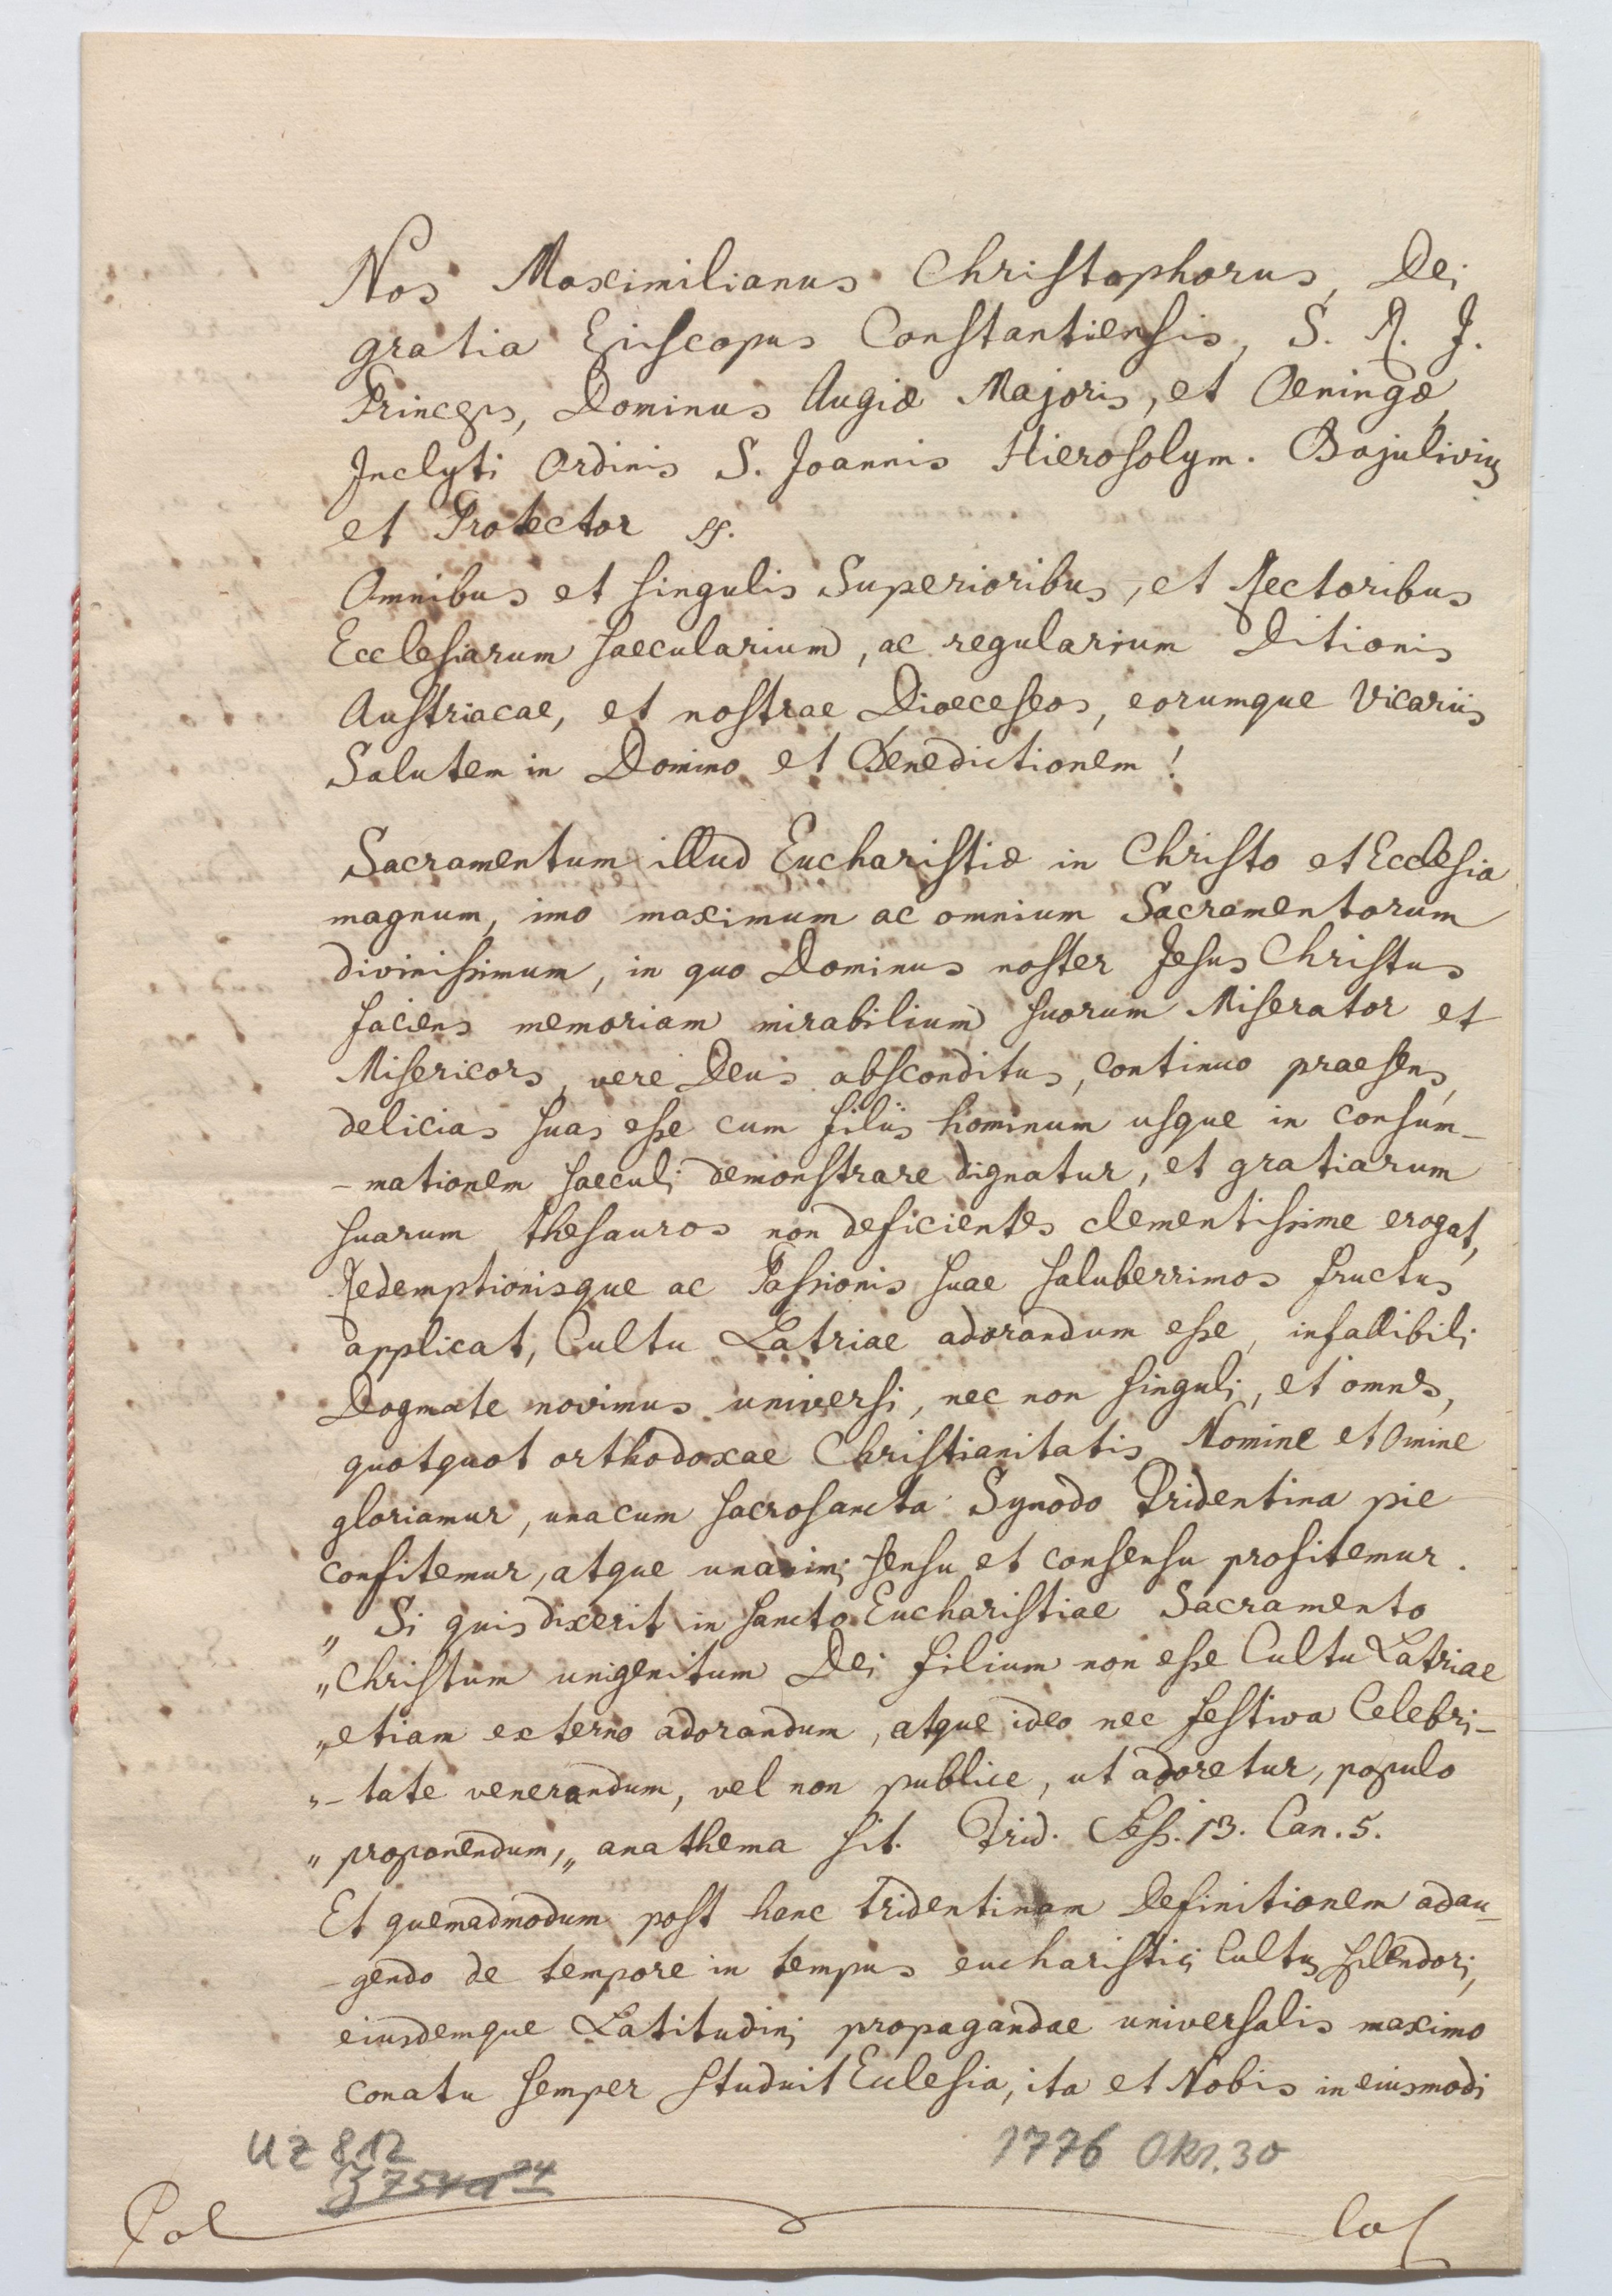 Nos Maximilianus Christophorus, Dei
gratia Episcopus Constantiensis, S. R. J.
Princeps, Dominus Augiæ Majoris, et Oeningæ,
Jnclyti Ordinis S. Joannis Hierosolym. Bajulivius
et Protector
Omnibus et singulis Superioribus, et Rectoribus
Ecclesiarum saecularium, ac regularium Ditionis
Austriacae, et nostrae Dioeceseos, eorumque Vicariis
Salutem in Domino et Benedictionem!
Sacramentum illud Eucharistiæ in Christo et Ecclesia
magnum, imo maximum ac omnium Sacramentorum
divinissimum, in quo Dominus noster Jesus Christus
faciens memoriam mirabilium suorum Miserator et
Misericors, vere Deus absconditus, continuo praesens,
delicias suas esse cum filiis hominum usque in consum-
-mationem saeculi demonstrare dignatur, et gratiarum
suarum thesauros non deficientes clementissime erogat,
Redemptionisque ac Passionis suae saluberrimos fructus
applicat, Cultu Latriae adorandum esse, infallibili
Dogmate novimus universi, nec non singuli, et omnes,
quotquot orthodoxae Christianitatis Nomine et Omine
gloriamur, unacum sacrosancta Synodo Tridentina pie
confitemur, atque unanimi sensu et consensu profitemur.
„ Si quis dixerit in sancto Eucharistiae Sacramento
„ Christum unigenitum Dei filium non esse Cultu Latriae
„ etiam externo adorandum, atque ideo nec festiva Celebri-
„ -tate venerandum, vel non publice, ut adoretur, populo
„ proponendum, „ anathema sit. Trid. Sess. 13. Can. 5.
Et quemadmodum post hanc Tridentinam Definitionem adau-
-gendo de tempore in tempus eucharistici Cultus splendori,
eiusdemque Latitudini propagandae universalis maximo
conatu semper studuit Ecclesia, ita et Nobis in eiusmodi
UZ 812
1776 Okt. 30